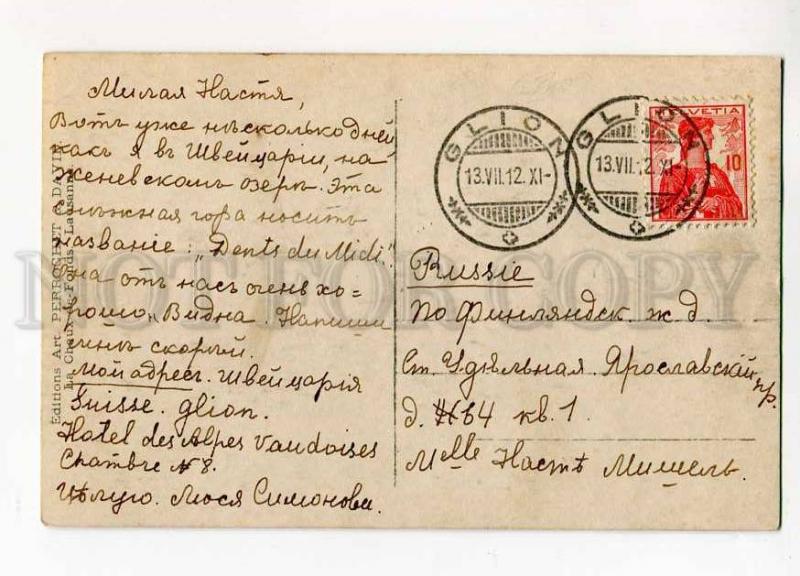 Милая Настя,
Вотъ уже нѣсколько дней
какъ я въ Швейцаріи, на
женевскомъ озерѣ. Эта
снѣжная гора носитъ
названіе: „Dents du Midi."
Она отъ насъ очень хо=
рошо видна. Напиши
мнѣ скорѣй.
Мой адресъ. Швейцарія
Suisse. Glion.
Hotel des Alpes Vaudoises
Chambre № 8.
Цѣлую. Люся Симонова.
Editions Art. PERROCHET & DAVID
La Chaux-de-Fonds - Lausanne
GLION
13.VII.12.XI-
GLION
13.VII.12.XI-
HELVETIA
10
Russie
по Финляндск. ж. д.
Ст. Удѣльная. Ярославскій
пр.
д. № 64 кв. 1.
Melle Настѣ Мишель.
NOT FOR COPY